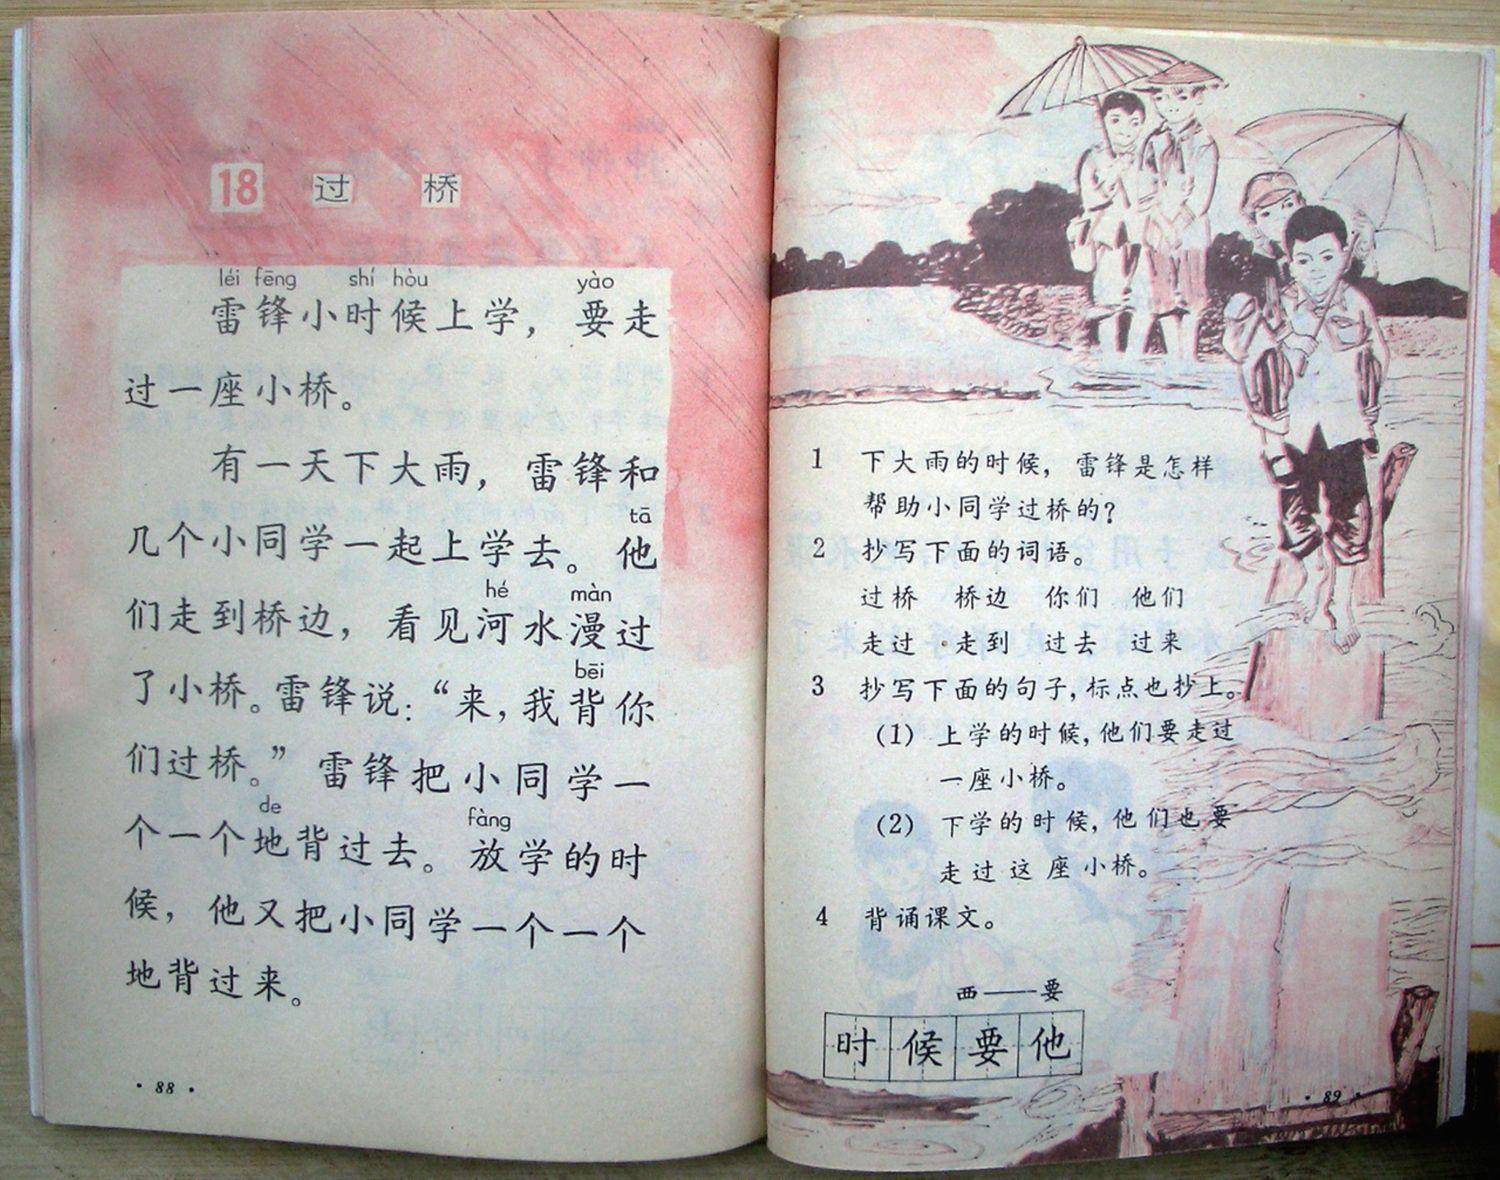 18 过桥
léi fēng shí hòu yào
雷锋小时候上学，要走
过一座小桥。
有一天下大雨，雷锋和
tā
几个小同学一起上学去。他
hé màn
们走到桥边，看见河水漫过
bēi
了小桥。雷锋说：“来，我背你
们过桥。”雷锋把小同学一
de fàng
个一个地背过去。放学的时
候，他又把小同学一个一个
地背过来。
·88·
1 下大雨的时候，雷锋是怎样
帮助小同学过桥的？
2 抄写下面的词语。
过桥 桥边 你们 他们
走过 走到 过去 过来
3 抄写下面的句子，标点也抄上。
（1）上学的时候，他们要走过
一座小桥。
（2）下学的时候，他们也要
走过这座小桥。
4 背诵课文。
西——要
时候要他
·89·